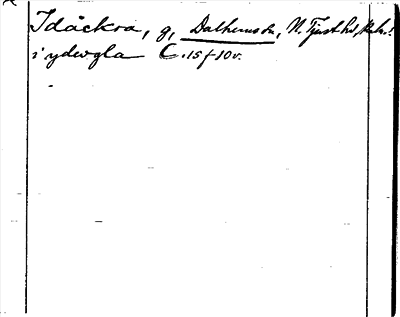 Idåckra, g, Dalhems sn, N. Tjust hd, Kalm.
i ydœgla C. 15 f 10 v.